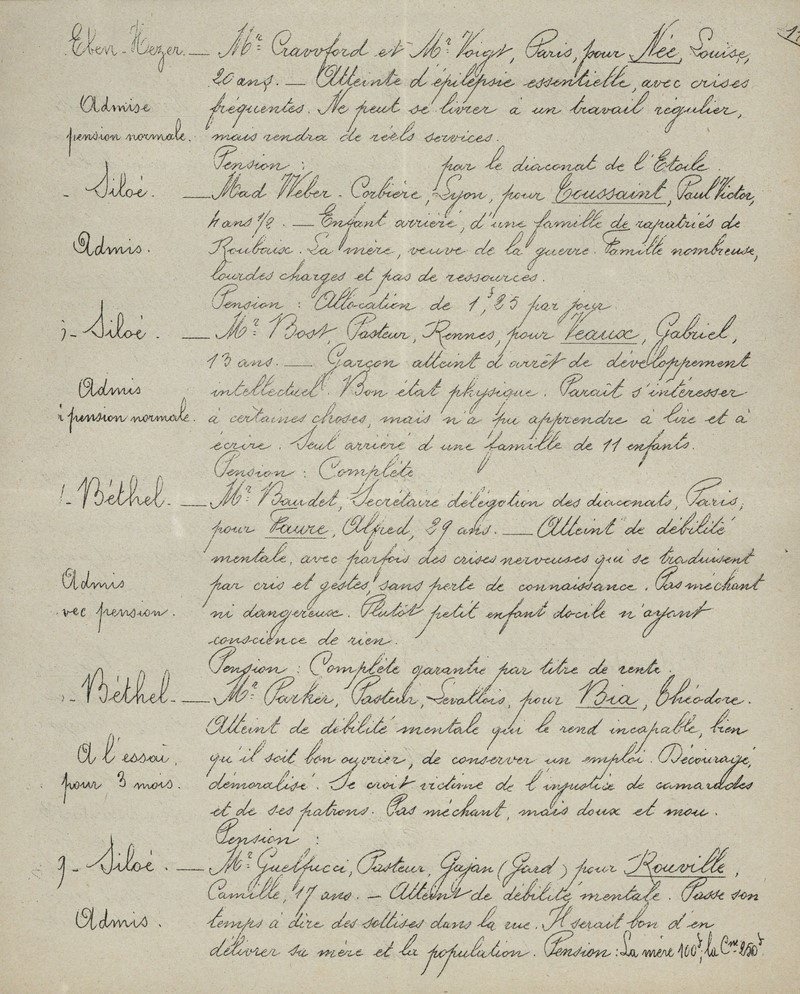 Eben-Hezer. — Mr Cravvford et Mr Voigt, Paris, pour Née, Louise,
20 ans. — Atteinte d'épilepsie essentielle, avec crises
Admise fréquentes. Ne peut se livrer à un travail régulier,
pension normale. mais rendra de réels services.
Pension : par le diaconat de l'Etoile.
- Siloé. — Mad Weber-Corbière, Lyon, pour Toussaint, Paul Victor,
4 ans 1/2. — Enfant arriéré, d'une famille de rapatriés de
Admis. Roubaix. La mère, veuve de la guerre. Famille nombreuse,
lourdes charges et pas de ressources.
Pension : Allocation de 1f,25 par jour.
- Siloé. — Mr Bost, Pasteur, Rennes, pour Veaux, Gabriel,
13 ans. — Garçon atteint d'arrêt de développement
Admis intellectuel. Bon état physique. Paraît s'intéresser
à pension normale. à certaines choses, mais n'a pu apprendre à lire et à
écrire. Seul arriéré d'une famille de 11 enfants.
Pension : Complète
- Béthel. — Mr Baudet, Secrétaire délégation des diaconats, Paris,
pour Faure, Alfred, 29 ans. — Atteint de débilité
mentale, avec parfois des crises nerveuses qui se traduisent
Admis par cris et gestes, sans perte de connaissance. Pas méchant
vec pension. ni dangereux. Plutôt petit enfant docile n'ayant
conscience de rien.
Pension : Complète garantie par titre de rente.
- Béthel. — Mr Parker, Pasteur, Levallois, pour Bia, Théodore.
Atteint de débilité mentale qui le rend incapable, bien
A l'essai, qu'il soit bon ouvrier, de conserver un emploi. Découragé,
pour 3 mois. démoralisé. Se croit victime de l'injustice de camarades
et de ses patrons. Pas méchant, mais doux et mou.
Pension :
- Siloé. — Mr Guelfucci, Pasteur, Gajan (Gard) pour Rouville,
Camille, 17 ans. — Atteint de débilité mentale. Passe son
Admis. temps à dire des sottises dans la rue. Il serait bon d'en
délivrer sa mère et la population. Pension : La mère 100f, la Cne 250f